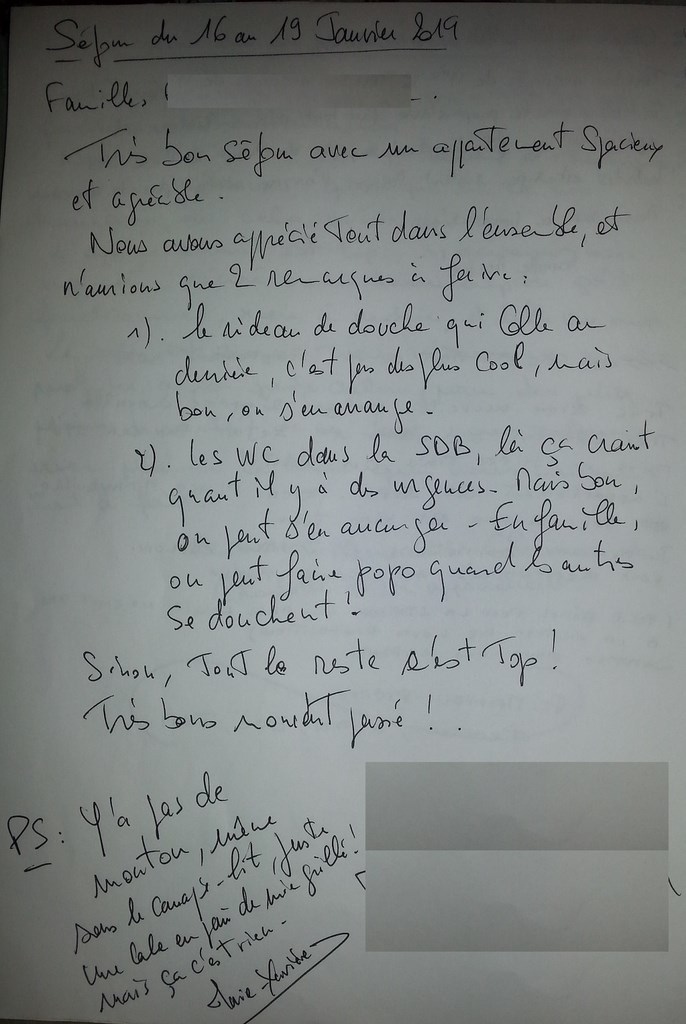 Séjour du 16 au 19 Janvier 2019
Familles
Très bon séjour avec un appartement spacieux
et agréable.
Nous avons apprécié Tout dans l'ensemble, et
n'aurions que 2 remarques à faire :
1). le rideau de douche qui Colle au
derrière, c'est pas des plus Cool, mais
bon, on s'en arrange.
2). les WC dans la SDB, là ça craint
quant il y à des urgences. Mais bon,
on peut s'en arranger - En famille,
on peut faire popo quand les autres
se douchent !
Sinon, Tout le reste c'est Top !
Très bons moment passé ! .
PS : Y'a pas de
mouton, même
sous le canapé-lit, juste
une latte en train de
mais ça c'est rien.